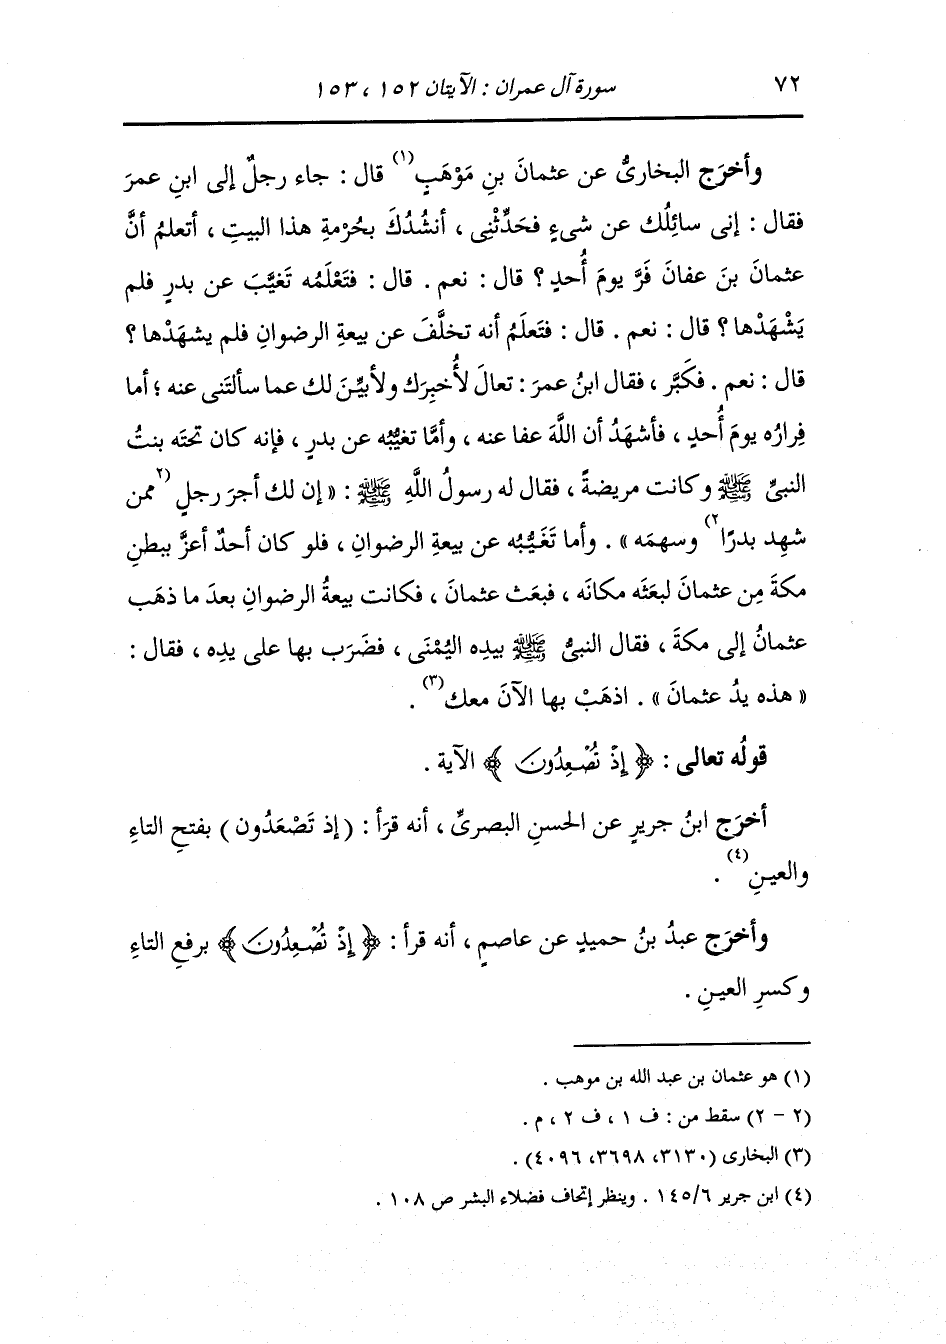 ٧٢ سورة آل عمران : الآيتان ١٥٢ ، ١٥٣
وأخرَج البخارىُّ عن عثمانَ بنِ مَوْهَبٍ(١) قال : جاء رجلٌ إلى ابنِ عمرَ
فقال : إنى سائِلُك عن شىءٍ فحَدِّثْنِى ، أنشُدُكَ بحُرْمةِ هذا البيتِ ، أتعلمُ أنَّ
عثمانَ بنَ عفانَ فَرَّ يومَ أُحدٍ ؟ قال : نعم . قال : فتَعْلَمُه تَغيَّبَ عن بدرٍ فلم
يَشْهَدْها ؟ قال : نعم . قال : فتَعلَمُ أنه تخلَّفَ عن بيعةِ الرضوانِ فلم يشهَدْها ؟
قال : نعم . فكَبَّر ، فقال ابنُ عمرَ : تعالَ لأُخبِرَك ولأبيِّنَ لك عما سألتَنى عنه ؛ أما
فِرارُه يومَ أُحدٍ ، فأشهَدُ أن اللَّهَ عفا عنه ، وأمَّا تغيُّبُه عن بدرٍ ، فإنه كان تحتَه بنتُ
النبىِّ ﷺ وكانت مريضةً ، فقال له رسولُ اللَّهِ ﷺ : « إن لك أجرَ رجلٍ (٢ممن
شهِد بدرًا٢) وسهمَه » . وأما تَغَيُّبُه عن بيعةِ الرضوانِ ، فلو كان أحدٌ أعزَّ ببطنِ
مكةَ مِن عثمانَ لبعَثَه مكانَه ، فبعَث عثمانَ ، فكانت بيعةُ الرضوانِ بعدَ ما ذهَب
عثمانُ إلى مكةَ ، فقال النبىُّ ﷺ بيدِه اليُمْنَى ، فضَرَب بها على يدِه ، فقال :
« هذه يدُ عثمانَ » . اذهَبْ بها الآنَ معك(٣) .
قولُه تعالى : ﴿ إِذْ تُصْعِدُونَ ﴾ الآية .
أخرَج ابنُ جريرٍ عن الحسنِ البصرىِّ ، أنه قرَأ : ( إذ تَصْعَدُون ) بفتحِ التاءِ
والعينِ(٤) .
وأخرَج عبدُ بنُ حميدٍ عن عاصمٍ ، أنه قرأ : ﴿ إِذْ تُصْعِدُونَ ﴾ برفعِ التاءِ
وكسرِ العينِ .
(١) هو عثمان بن عبد الله بن موهب .
(٢ - ٢) سقط من : ف ١ ، ف ٢ ، م .
(٣) البخارى (٣١٣٠، ٣٦٩٨، ٤٠٩٦) .
(٤) ابن جرير ١٤٥/٦ . وينظر إتحاف فضلاء البشر ص ١٠٨ .